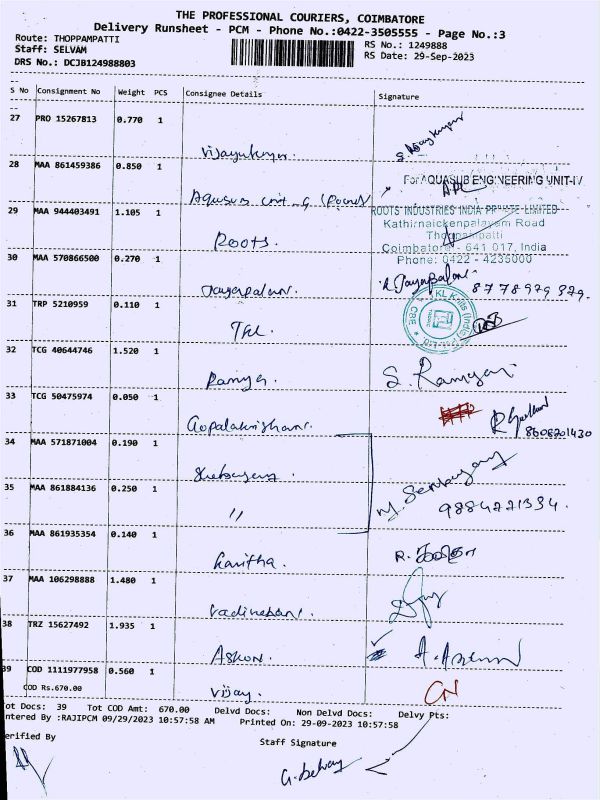 THE PROFESSIONAL COURIERS, COIMBATORE
Delivery Runsheet - PCM - Phone No.:0422-3505555 - Page No.:3
Route: THOPPAMPATTI
Staff: SELVAM
DRS No.: DCJB124988803
RS No.: 1249888
RS Date: 29-Sep-2023
S No Consignment No Weight PCS Consignee Details Signature
27 PRO 15267813 0.770 1
Vijayakumar
28 MAA 861459386 0.850 1
For AQUASUB ENGINEERING UNIT-IV
29 MAA 944403491 1.105 1
Roots.
ROOTS INDUSTRIES INDIA PRIVATE LIMITED
Kathirnaickenpalayam Road
Thoppampatti
Coimbatore - 641 017, India
Phone: 0422 - 4235000
30 MAA 570866500 0.270 1
Jayapalan. 8778979379.
31 TRP 5210959 0.110 1
TKL
32 TCG 40644746 1.520 1
Ramya. S. Ramya
33 TCG 50475974 0.050 1
Gopalakrishnan. 8606201430
34 MAA 571871004 0.190 1
35 MAA 861884136 0.250 1
" 9884221334.
36 MAA 861935354 0.140 1
Kavitha.
37 MAA 106298888 1.480 1
38 TRZ 15627492 1.935 1
Askon.
39 COD 1111977958 0.560 1
COD Rs.670.00
Vijay. CN
Tot Docs: 39 Tot COD Amt: 670.00 Delvd Docs: Non Delvd Docs: Delvy Pts:
ntered By :RAJIPCM 09/29/2023 10:57:58 AM Printed On: 29-09-2023 10:57:58
erified By
Staff Signature
G. Selvam